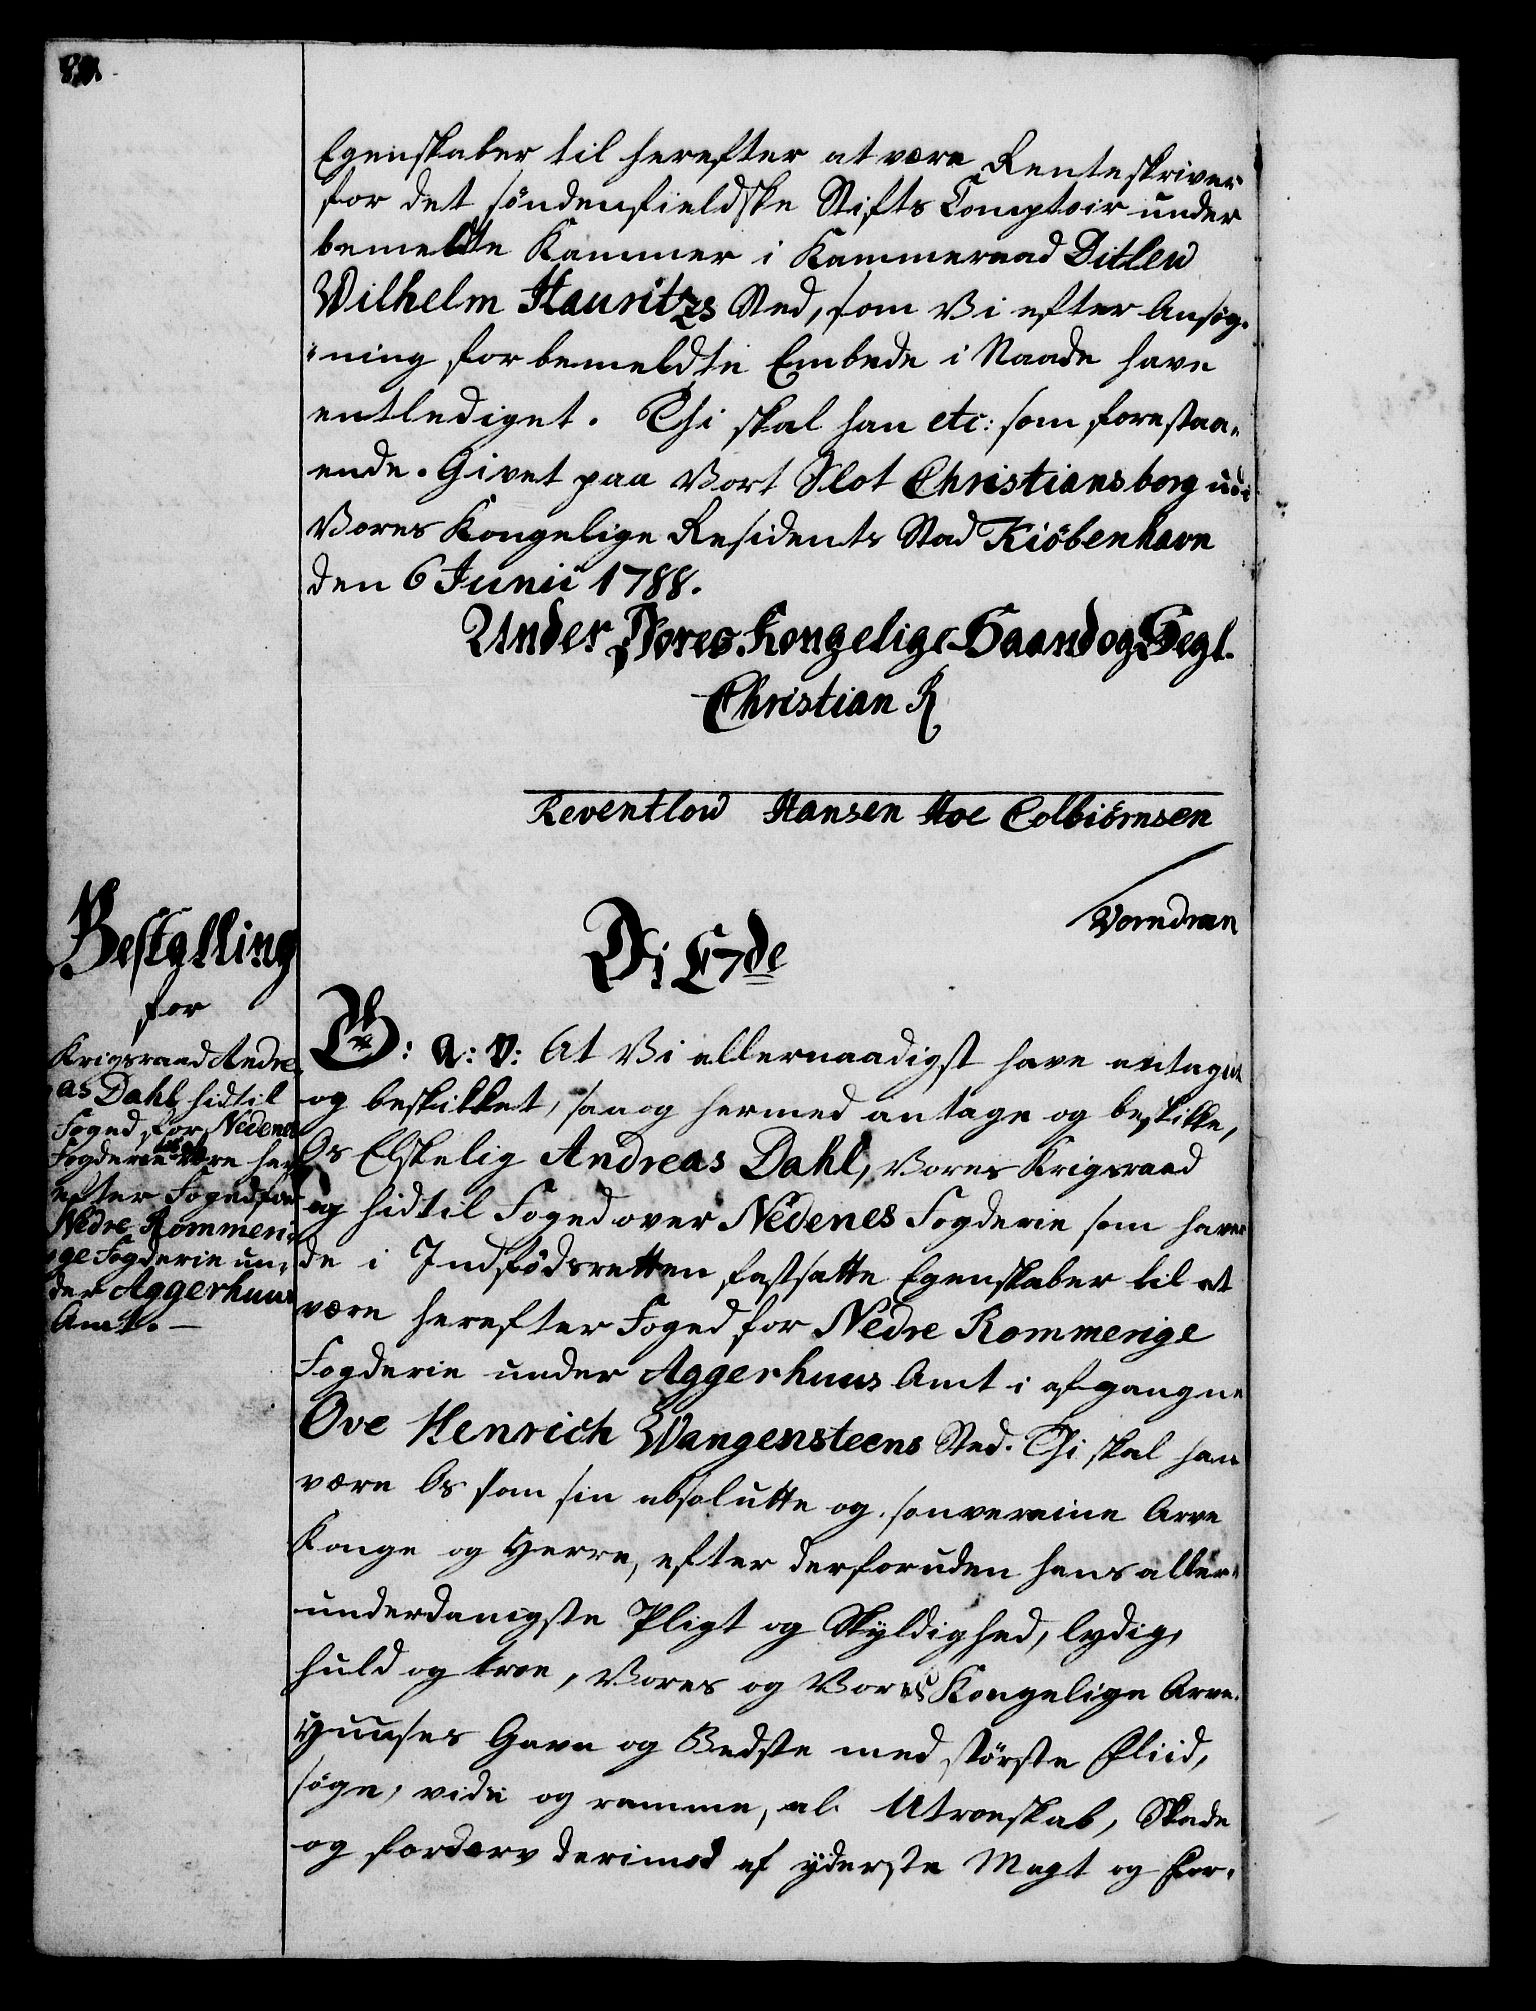 Egenskaber til herefter at være Renteskriver
for det söndenfieldske Stifts Comptoir under
bemeldte Kammer i Kammerraad Ditlev
Wilhelm Hauritzs Sted, som Vi efter Ansøg-
ning forbemeldte Embede i Naade have
entlediget. Thi skal han etc: som forestaa-
ende. Givet paa Vort Slot Christiansborg udi
Vores Kongelige Residents Stad Kiöbenhavn
den 6 Junii 1788.
Under Vores Kongelige Haand og Segl.
Christian R
Reventlow Hansen Hoe Colbiörnsen
Vorndran
Bestalling
for
Krigsraad Andre-
as Dahl hidtil
Foged for Nedenes
Fogderie at være her-
efter Foged for
Nedre Rommeri-
ge Fogderie un-
der Aggerhuus
Amt. —
Vi C 7de
G: A: V: At Vi allernaadigst have antaget
og beskikket, saa og hermed antage og beskikke,
Os Elskelig Andreas Dahl, Vores Krigsraad
og hidtil Foged over Nedenes Fogderie som haver
de i Indfödsretten fastsatte Egenskaber til at
være herefter Foged for Nedre Rommerige
Fogderie under Aggerhuus Amt i afgangne
Ove Henrich Wangensteens Sted. Thi skal han
være Os som sin absolutte og souveraine Arve
Konge og Herre, efter derforuden hans aller-
underdanigste Pligt og Skyldighed, lydig,
huld og troe, Vores og Vores Kongelige Arve-
Huuses Gavn og Bedste med störste Fliid,
söge, vide og ramme, al Utroeskab, Skade
og fordærv derimod af yderste Magt og For-